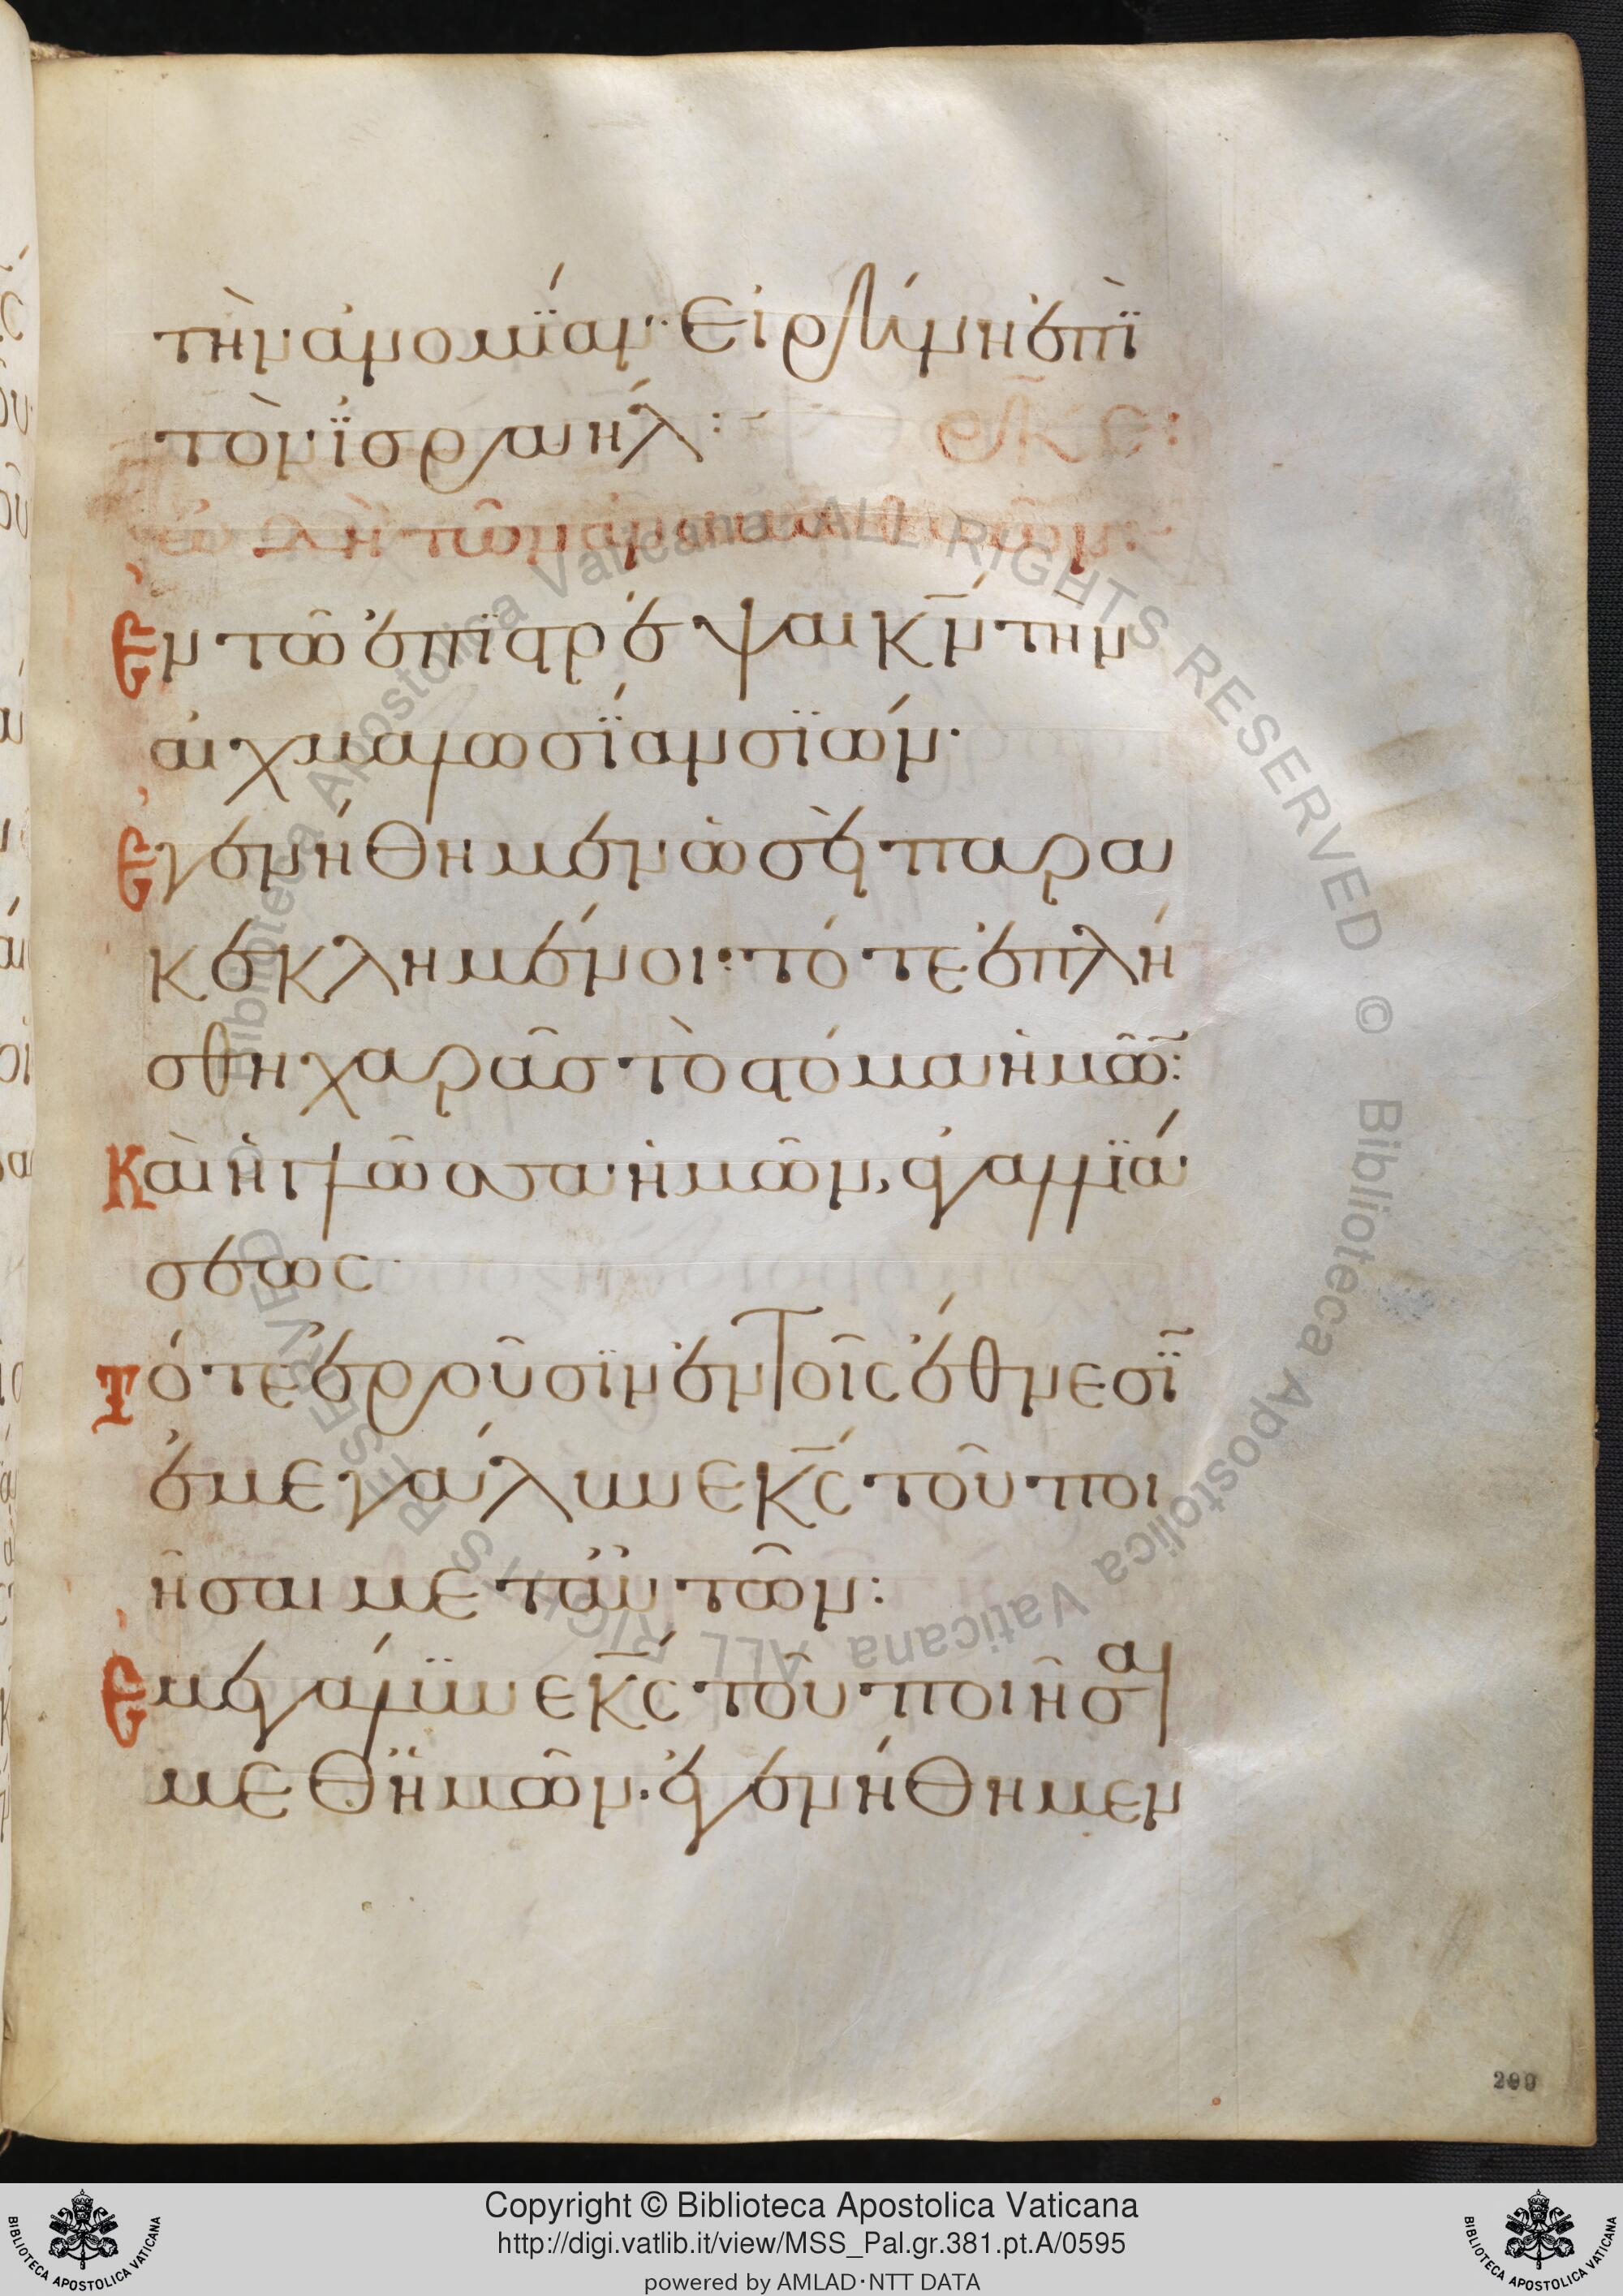 τὴν ἀνομΐαν· Εἰρήνη ἐπῒ
τὸν ϊσραήλ:
ρκε:
ὠδὴ τῶν ἀναβαθμῶν:
Ἐν τῶ ἐπϊστρέψαι κν̄ τὴν
αἰχμαλωσΐαν σϊών·
Ἐγενήθημεν ὡσεὶ παρα
κεκλημένοι· τότε ἐπλή
σθη χαρᾶσ τὸ στόμα ἡμῶ̄:
Καὶ ἡ γλῶσσα ἡμῶν, ἀγαλλϊά
σεως·
Τότε ἐροῦσϊν ἐν τοῖς ἔθνεσῒ
ἐμεγάλυνε κ̄ς τοῦ ποι
ῆσαι μετ' αὐτῶν:
Ἐμεγάλϋνε κ̄ς τοῦ ποιῆσαι
μεθ' ἡμῶν· ἐγενήθημεν
200
Copyright © Biblioteca Apostolica Vaticana
http://digi.vatlib.it/view/MSS_Pal.gr.381.pt.A/0595
powered by AMLAD·NTT DATA
BIBLIOTECA APOSTOLICA VATICANA
BIBLIOTECA APOSTOLICA VATICANA
© Biblioteca Apostolica Vaticana ALL RIGHTS RESERVED
© Biblioteca Apostolica Vaticana ALL RIGHTS RESERVED